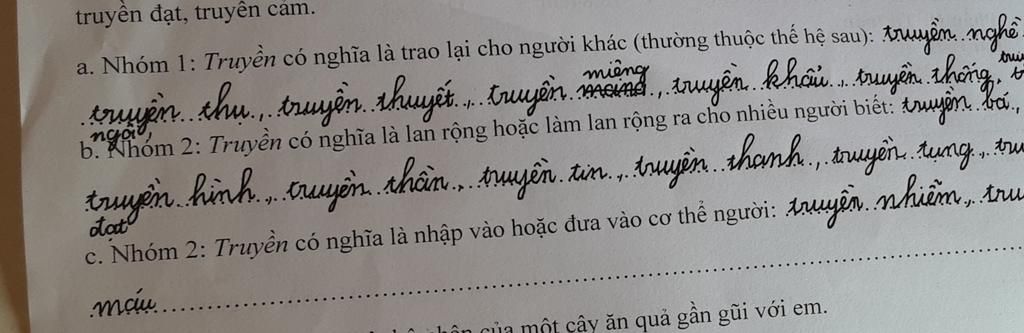 truyền đạt, truyền cảm.
a. Nhóm 1: Truyền có nghĩa là trao lại cho người khác (thường thuộc thế hệ sau): truyền nghề
truyền thụ, truyền thuyết, truyền miệng, truyền khẩu, truyền thống,
ngôi,
b. Nhóm 2: Truyền có nghĩa là lan rộng hoặc làm lan rộng ra cho nhiều người biết: truyền bá,
truyền hình, truyền thần, truyền tin, truyền thanh, truyền tụng,
đạt
c. Nhóm 2: Truyền có nghĩa là nhập vào hoặc đưa vào cơ thể người: truyền nhiễm,
máu
của một cây ăn quả gần gũi với em.